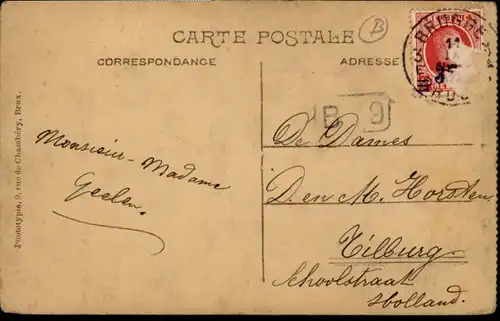 CARTE POSTALE
CORRESPONDANCE
ADRESSE
B
B 9
Monsieur - Madame
Geelen.
De Dames
D. en M. Horsten
Tilburg
Schoolstraat
Holland.
Phototypie, 9, rue de Chambéry, Brux.